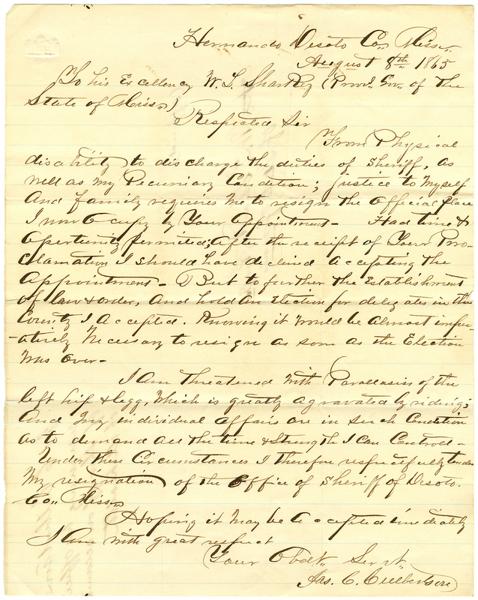 Hernando Desoto Co. Miss.
August 8th 1865
To his Excellency W. L. Sharkey (Provl. Gov. of the
State of Miss)
Respected Sir
From Physical
disability to discharge the duties of Sheriff, as
well as my Pecuniary Condition; justice to Myself
And family requires me to resign the Official place
I now Occupy by Your Appointment - Had time &
Opertunity permited; After the receipt of Your Pro-
clamation I should have declined accepting the
Appointment - But to further the Establishment
of law & order, And hold an Election for delegates in this
County I accepted. Knowing it would be Almost impe-
ratively Necessary to resign as soon as the Election
Was Over -
I am threatened with Parallasis of the
left hip & legg, Which is greatly agravated by riding;
And My individual affairs are in such Condition
as to demand all the time & Strength I Can Controll -
Under these Circumstances I therefore respectfully tender
My resignation of the Office of Sheriff of Desoto
Co. Miss
Hoping it may be accepted imediately
I Am with great respect
Your Obdt. Servt.
Jas. C. Culbertson